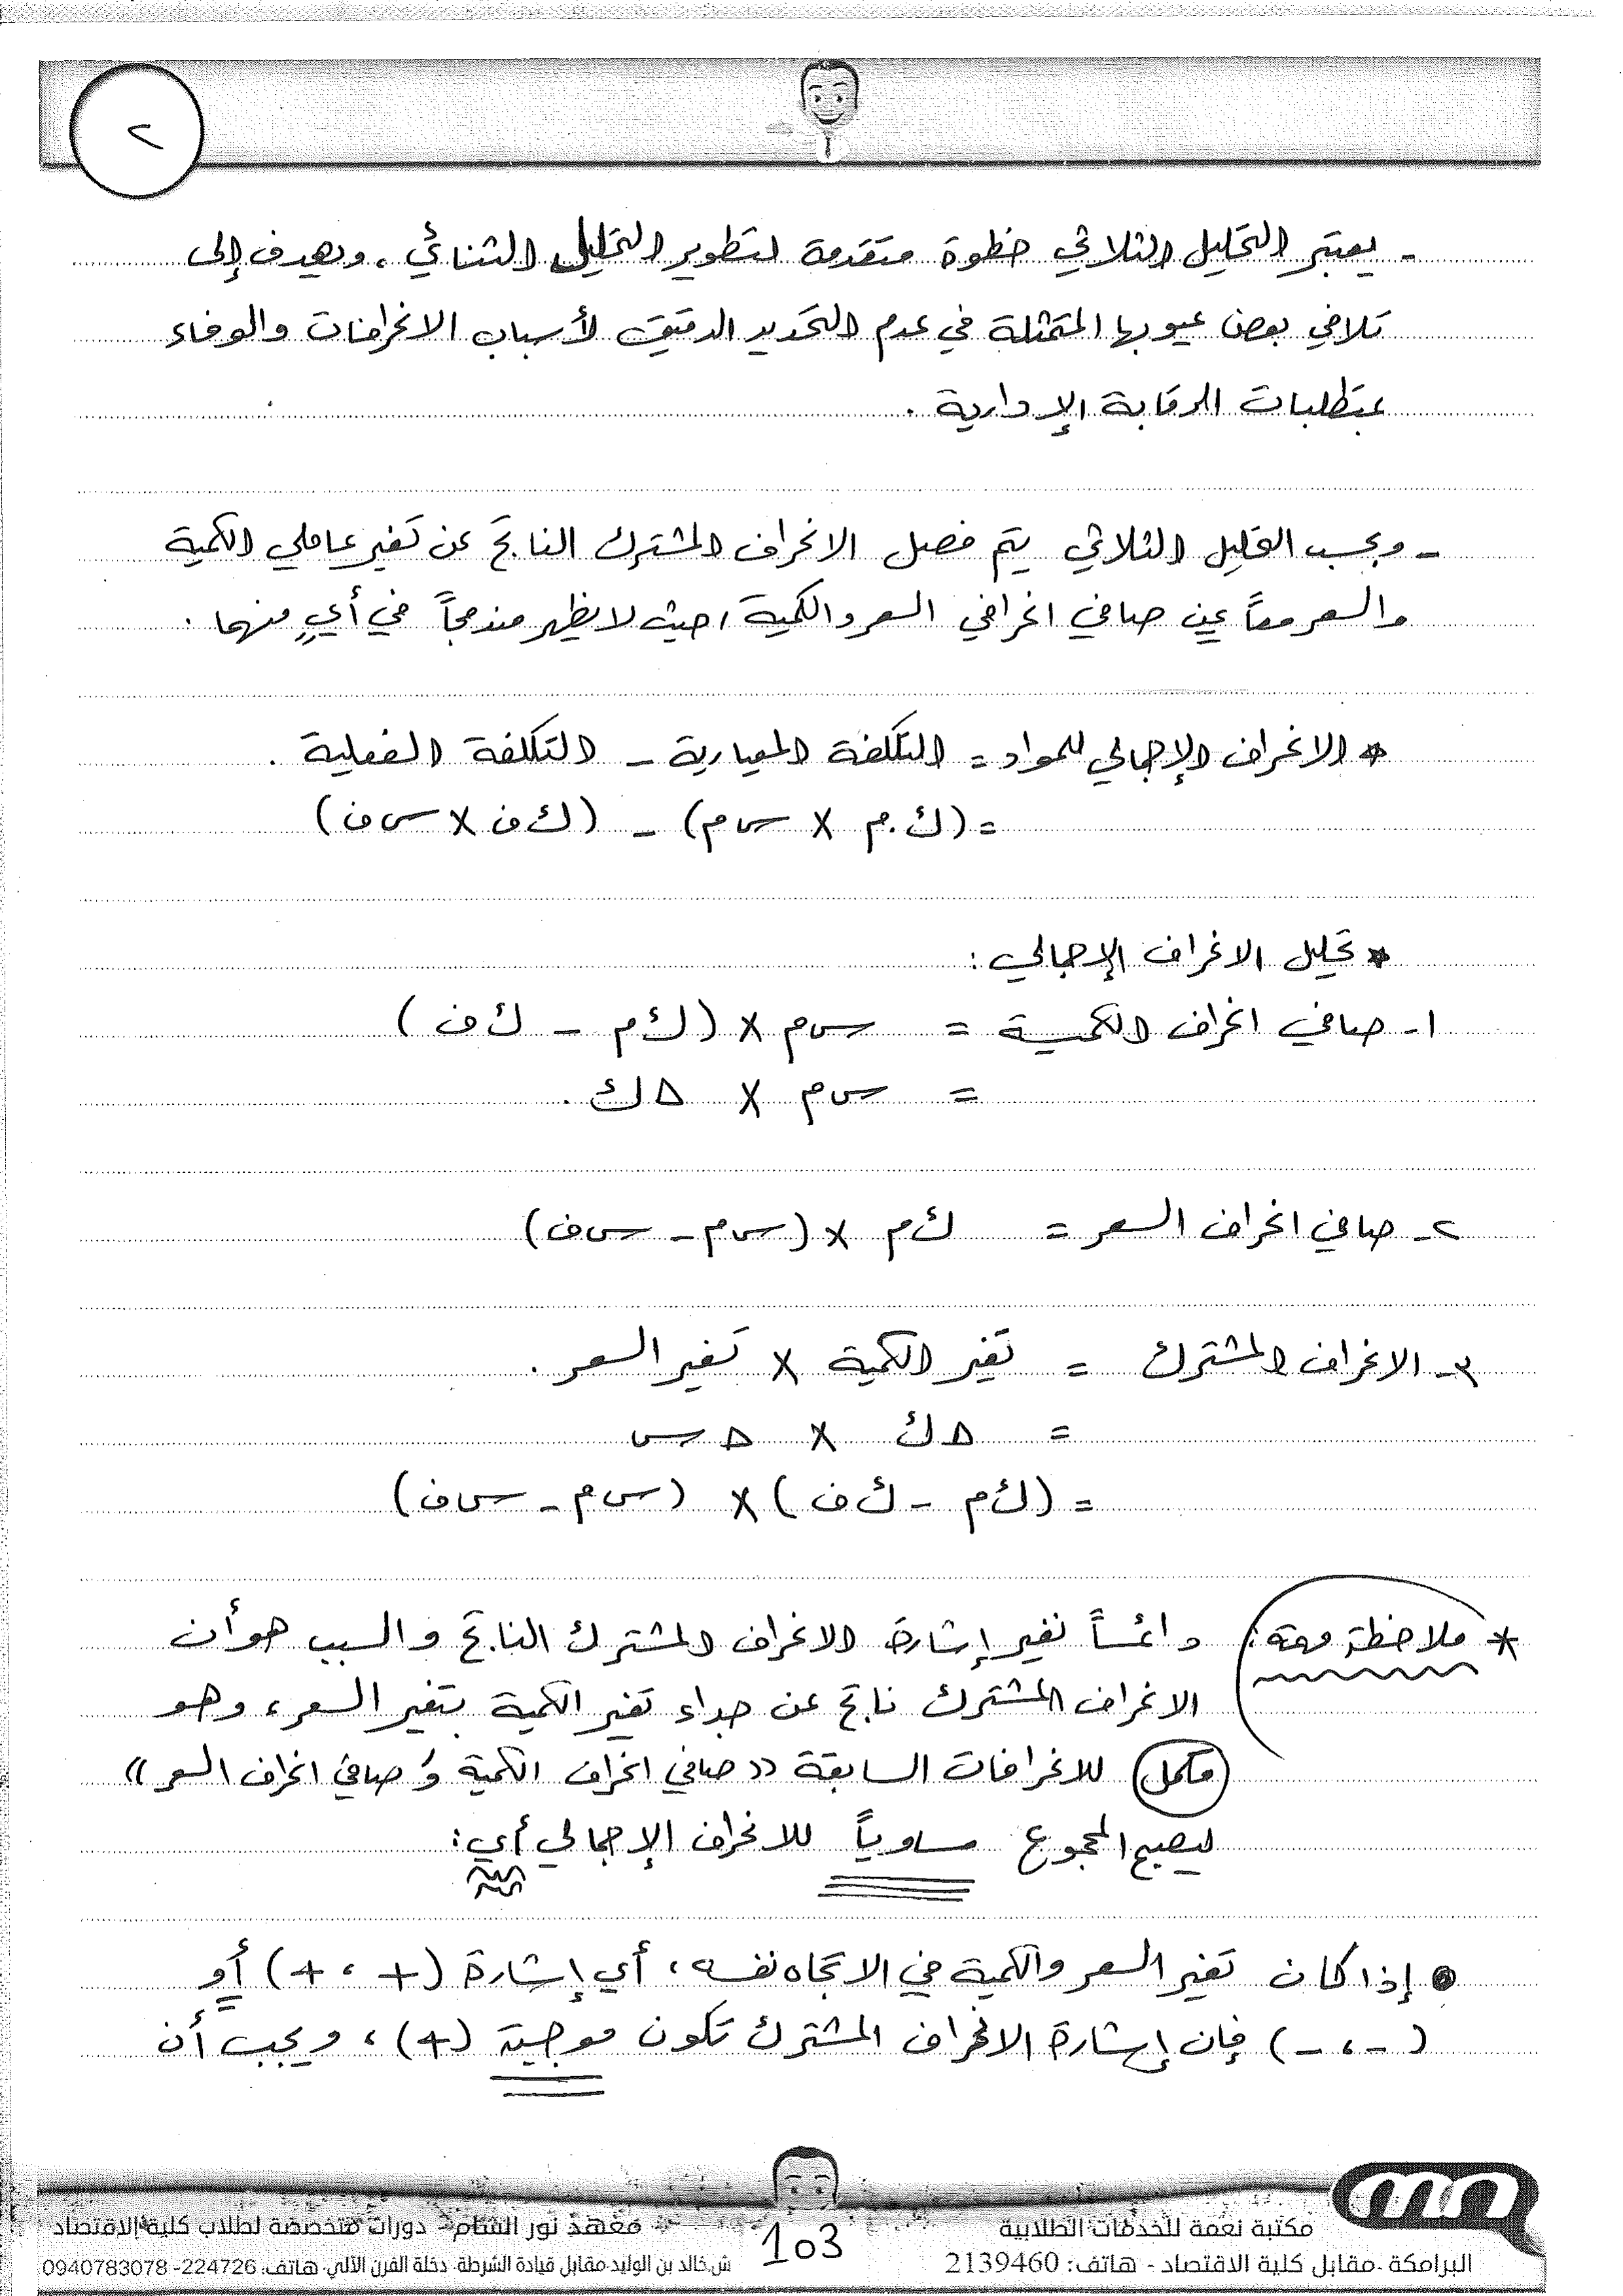 ٢
- يعتبر التحليل الثلاثي خطوة متقدمة لتطوير التحليل الثنائي، ويهدف إلى
تلافي بعض عيوبها المتمثلة في عدم التحديد الدقيق لأسباب الانحرافات والوفاء
بمتطلبات الرقابة الإدارية .
- وبحسب التحليل الثلاثي يتم فصل الانحراف المشترك الناتج عن تغير عاملي الكمية
والسعر معاً عن صافي انحرافي السعر والكمية، حيث لا يظهر مندمجاً في أيٍ منهما .
* الانحراف الإجمالي للمواد = التكلفة المعيارية - التكلفة الفعلية .
= (ك.م × س م) - (ك ف × س ف)
* تحليل الانحراف الإجمالي :
١- صافي انحراف الكمية = س م × (ك م - ك ف)
= س م × ∆ ك .
٢- صافي انحراف السعر = ك م × (س م - س ف)
٣- الانحراف المشترك = تغير الكمية × تغير السعر .
= ∆ ك × ∆ س
= (ك م - ك ف) × (س م - س ف)
* ملاحظة مهمة: دائماً نغير إشارة الانحراف المشترك الناتج والسبب هو أن
الانحراف المشترك ناتج عن جداء تغير الكمية بتغير السعر، وهو
مكمل للانحرافات السابقة «صافي انحراف الكمية وَ صافي انحراف السعر»
ليصبح المجموع مساوياً للانحراف الإجمالي أي :
● إذا كان تغير السعر والكمية في الاتجاه نفسه، أي إشارة (+ ، +) أو
(- ، -) فإن إشارة الانحراف المشترك تكون موجبة (+)، ويجب أن
مكتبة نعمة للخدمات الطلابية
البرامكة -مقابل كلية الاقتصاد - هاتف: 2139460
103
معهد نور الشام - دورات متخصصة لطلاب كلية الاقتصاد
ش.خالد بن الوليد-مقابل قيادة الشرطة- دخلة الفرن الآلي- هاتف: 224726- 0940783078